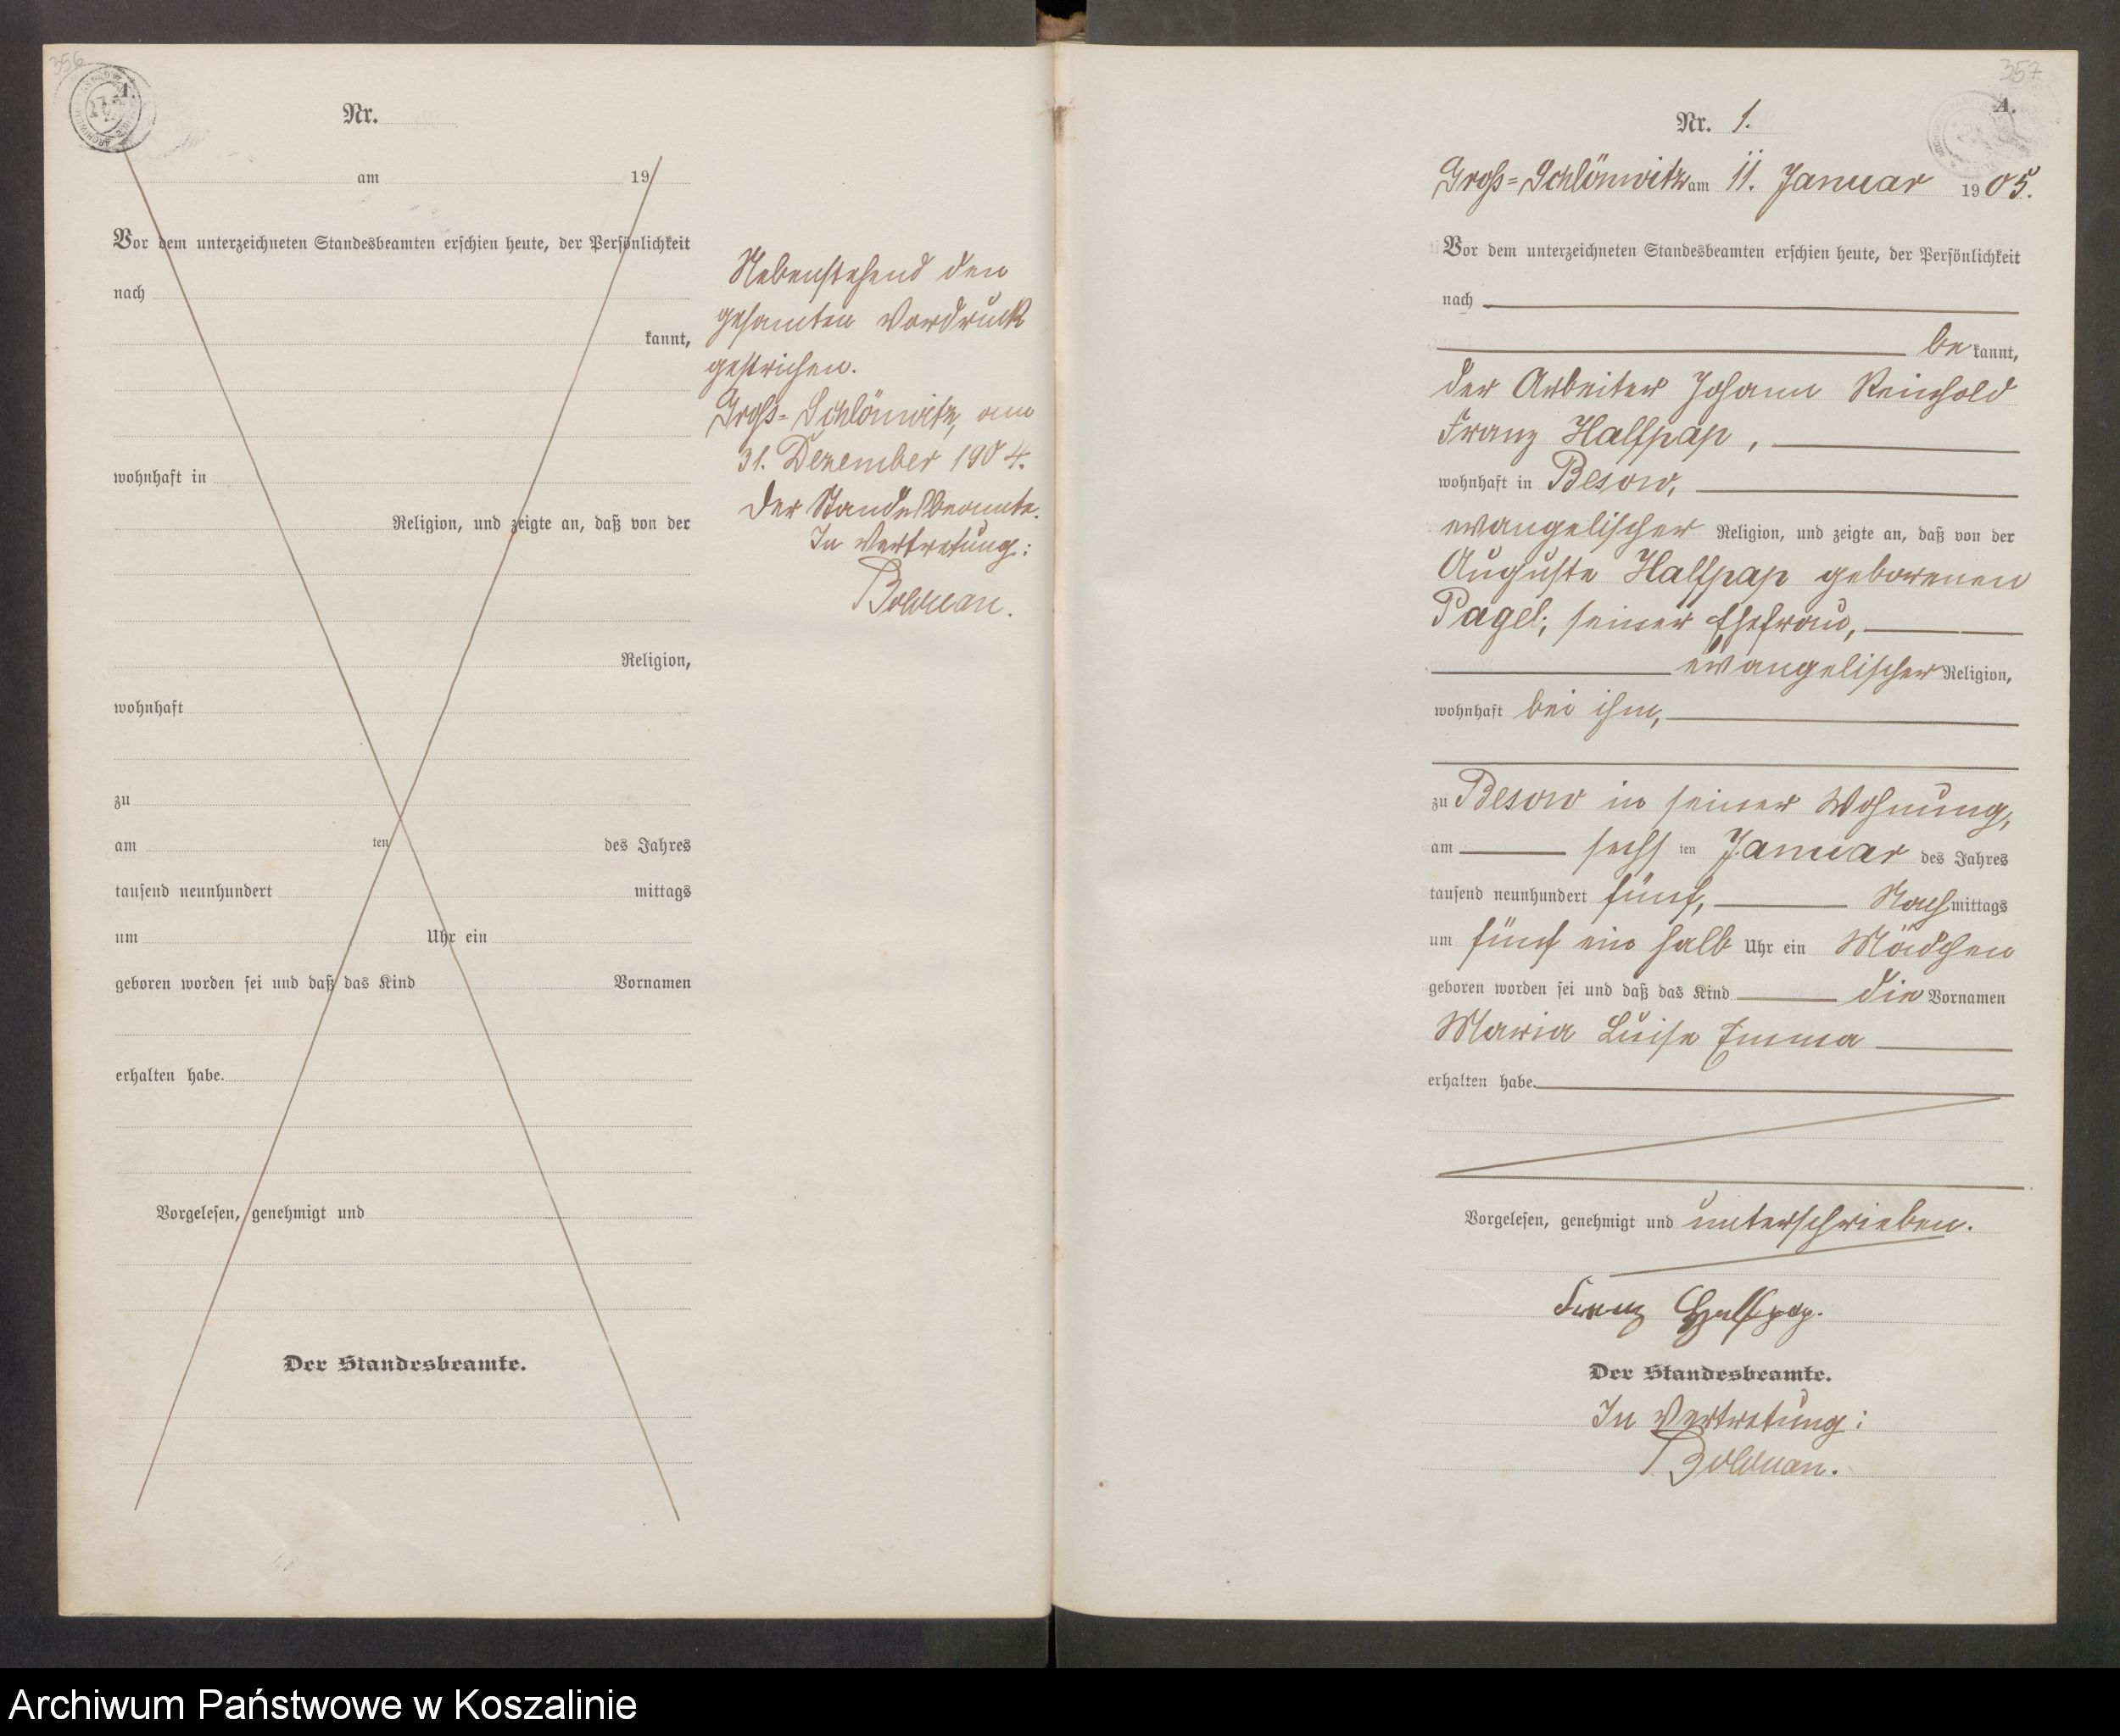 356
A.
Nr.
am 19
Vor dem unterzeichneten Standesbeamten erschien heute, der Persönlichkeit
nach
kannt,
wohnhaft in
Religion, und zeigte an, daß von der
Religion,
wohnhaft
zu
am ten des Jahres
tausend neunhundert mittags
um Uhr ein
geboren worden sei und daß das Kind Vornamen
erhalten habe.
Vorgelesen, genehmigt und
Der Standesbeamte.
Nebenstehend den
gesamten Vordruck
gestrichen.
Groß=Schlönwitz, am
31. Dezember 1904.
Der Standesbeamte.
In Vertretung:
Bolduan.
357
A.
Nr. 1.
Groß=Schlönwitz am 11. Januar 1905.
Vor dem unterzeichneten Standesbeamten erschien heute, der Persönlichkeit
nach
bekannt,
der Arbeiter Johann Reinhold
Franz Halfpap,
wohnhaft in Besow,
evangelischer Religion, und zeigte an, daß von der
Auguste Halfpap geborenen
Pagel, seiner Ehefrau,
evangelischer Religion,
wohnhaft bei ihm,
zu Besow in seiner Wohnung,
am sechsten Januar des Jahres
tausend neunhundert fünf, Nachmittags
um fünf ein halb Uhr ein Mädchen
geboren worden sei und daß das Kind die Vornamen
Maria Luise Emma
erhalten habe.
Vorgelesen, genehmigt und unterschrieben.
Franz Halfpap.
Der Standesbeamte.
In Vertretung:
Bolduan.
Archiwum Państwowe w Koszalinie